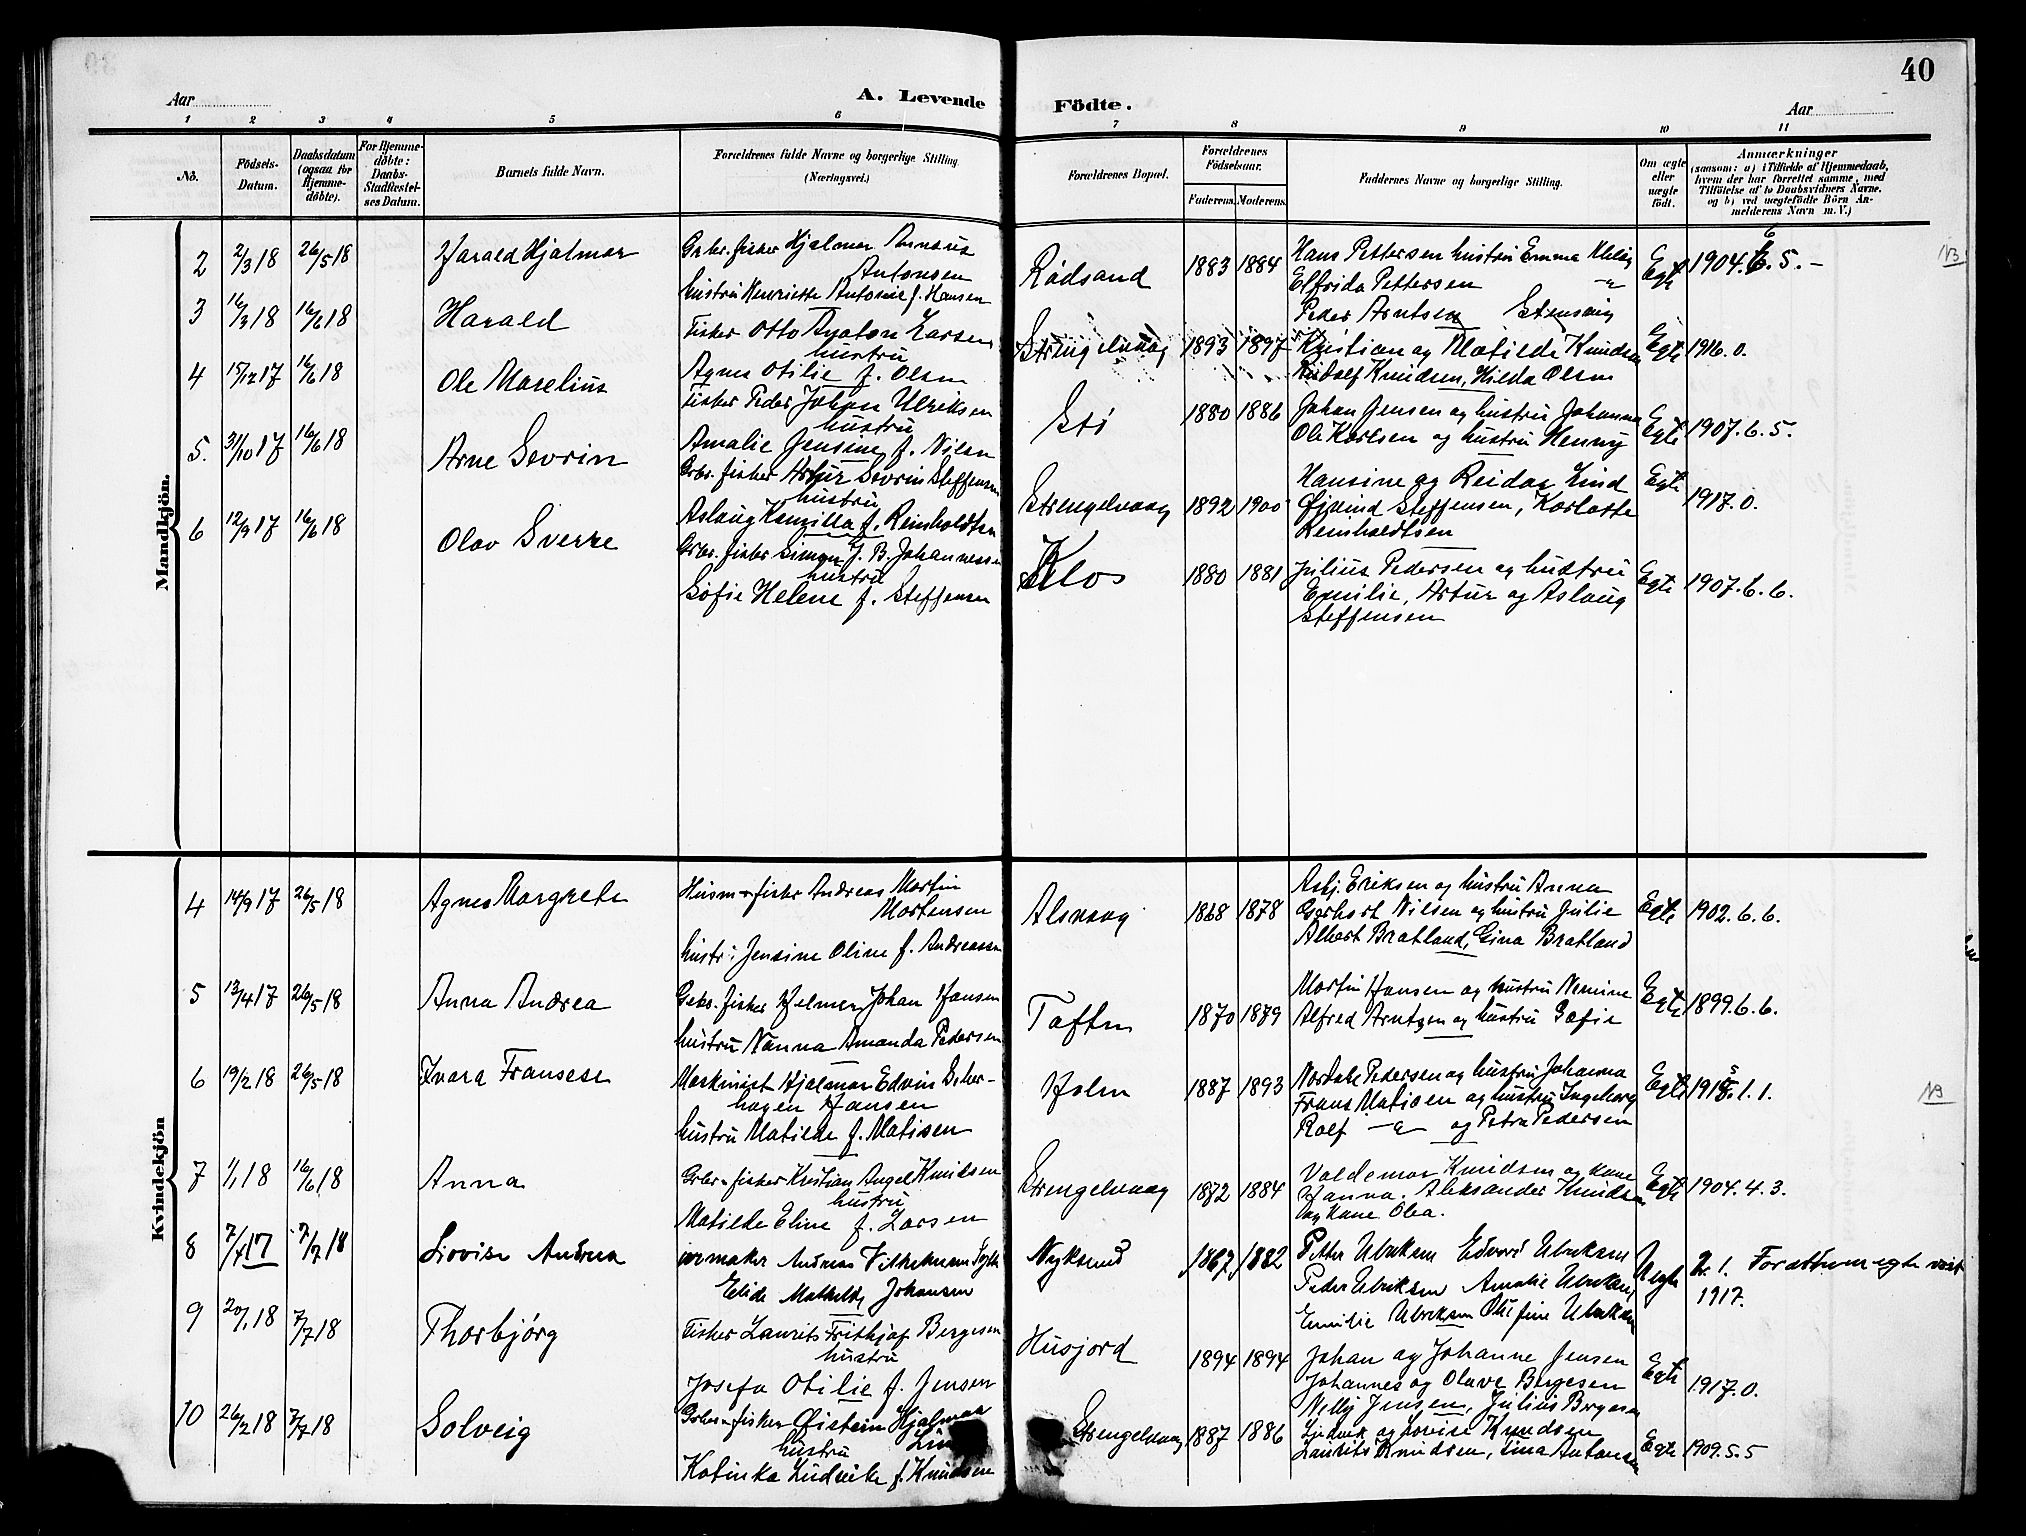 40
Aar
A. Levende Födte.
Aar
1 2 3 4 5 6 7 8 9 10 11
No.
Födsels-Datum.
Daabsdatum (ogsaa for Hjemme-döbte).
For Hjemme-döbte: Daabs-Stadfæstel-ses Datum.
Barnets fulde Navn.
Forældrenes fulde Navne og borgerlige Stilling.
(Næringsvei.)
Forældrenes Bopæl.
Forældrenes Födselsaar.
Faderens. Moderens.
Faddernes Navne og borgerlige Stilling.
Om ægte eller uægte födt.
Anmærkninger
(saasom: a) i Tilfælde af Hjemmedaab,
hvem der har forrettet samme, med
Tilföielse af to Daabsvidners Navne.
og b) ved uægtefödte Börn An-
melderens Navn m. V.)
Mandkjön.
2 2/3 18 26/5 18 Harald Hjalmar
Grbr. fisker Hjalmar Annæus
Antonsen
hustru Henriette Antonie f. Hansen
Rödsand 1883 1884
Hans Pettersen hustru Emma
Elfrida Pettersen
Peder Arntsen
Egte 1904. 6. 5. –
NB
3 16/3 18 16/6 18 Harald
Fisker Otto Anton Larsen
hustru
Agnes Otilie f. Olsen
Strengelvaag 1893 1897
Kristian og Matilde Knudsen
Rudolf Knudsen, Hilda Olsen
Egte 1916. 0.
4 15/12 17 16/6 18 Ole Marelius
Fisker Peder Johan Ulriksen
hustru
Amalie Jensine f. Nilsen
Stö 1880 1886
Johan Jensen og hustru Johanna
Ole Karlsen og hustru Henny
Egte 1907. 6. 5.
5. 31/10 17 16/6 18 Arne Sevrin
Grbr. fisker Artur Sevrin Steffensen
hustru
Aslaug Kamilla f. Reinholdtsen
Strengelvaag 1892 1900
Hansine og Reidar Lind
Øjvind Steffensen, Karlotte
Reinholdtsen
Egte 1917. 0.
6 12/9 17 16/6 18 Olav Sverre
Grbr. fisker Simon J. B. Johannessen
hustru
Sofie Helene f. Steffensen
Klos 1880 1881
Julius Pedersen og hustru
Emilie, Artur og Aslaug
Steffensen
Egte 1907. 6. 6.
Kvindekjön
4 14/9 17 26/5 18 Agnes Margrete
Husm. fisker Andreas Martin
Mortensen
hustr: Jensine Oline f. Andreassen
Alsvaag 1868 1878
Asbj. Eriksen og hustru Anna
Gerhart Nilsen og hustru Julie
Albert Bratland, Gina Bratland
Egte 1902. 6. 6.
5 13/4 17 26/5 18 Anna Andrea
Grbr. fisker Helmer Johan Hansen
hustru Nanna Amanda Pedersen
Toften 1870 1879
Martin Hansen og hustru Nemine
Alfred Arntzen og hustru Sofie
Egte 1899. 6. 6.
6 19/2 18 26/5 18 Ivara Fransese
Maskinist Hjalmar Edvin
hagen Hansen
hustru Matilde f. Matisen
Holm 1887 1893
Nordahl Pedersen og hustru Johanna
Frans Matisen og hustru Ingeborg
Rolf og Petra Pedersen
Egte 1915. 1. 1.
NB
7 1/1 18 16/6 18 Anna
Grbr. fisker Kristian Angel Knudsen
hustru
Matilde Eline f. Larsen
Strengelvaag 1872 1884
Valdemar Knudsen og kone
Hanna. Aleksander Knudsen
og kone Olea.
Egte 1904. 4. 3.
8 7/4 17 7/7 18 Lovise Andrea
urmaker Andreas Vilhelmsen
Elide Mathilde Johansen
Nyksund 1867 1882
Petter Ulriksen Edvard Ulriksen
Peder Ulriksen Amalie Ulriksen,
Emilie Ulriksen Olufine Ulriksen
Uegte 2. 1.
1917.
9 20/1 18 7/7 18 Thorbjörg
Fisker Laurits Frithjof Bergesen
hustru
Josefa Otilie f. Jensen
Husjord 1894 1894
Johan og Johanne Jensen
Johannes og Olave Bergesen
Nelly Jensen, Julius Bergesen
Egte 1917. 0.
10 26/2 18 7/7 18 Solveig
Grbr. fisker Øistein Hjalmar
hustru
Katinka Ludvike f. Knudsen
Strengelvaag 1887 1886
Ludvik og Lovise Knudsen
Laurits Knudsen, Lina Antonsen
Egte 1909. 5. 5